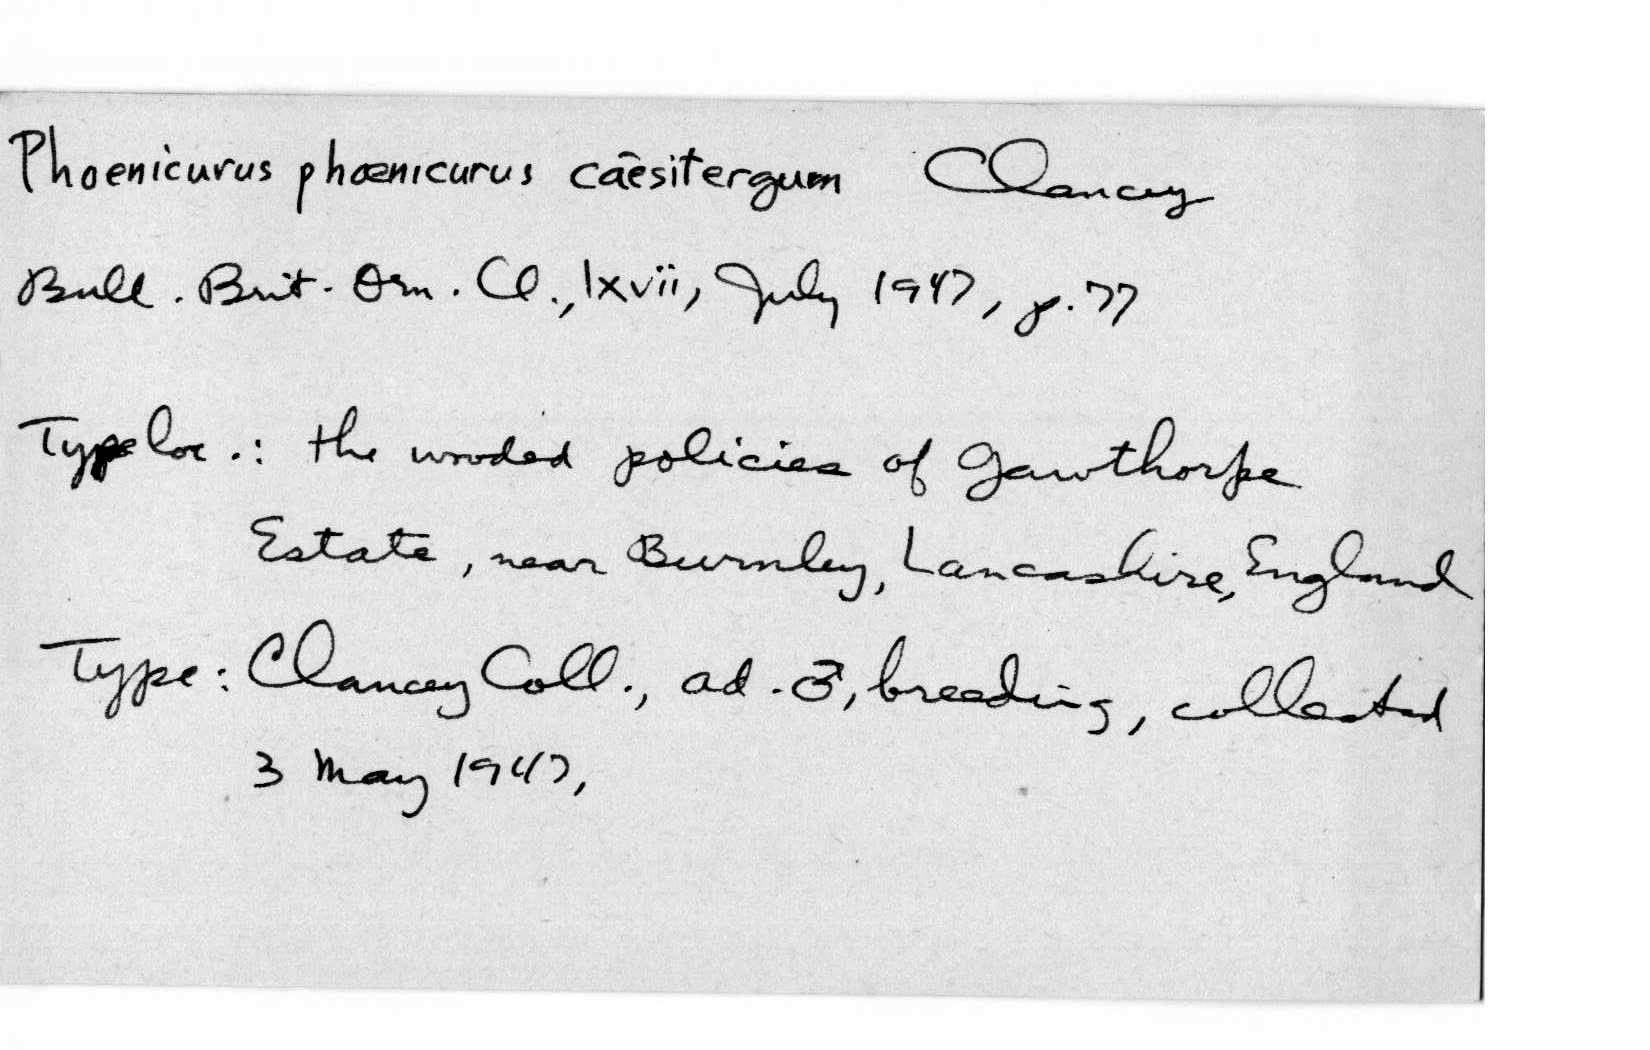 Phoenicurus phœnicurus cāesitergum Clancey
Bull. Brit. Orn. Cl., lxvii, July 1947, p.77
Type loc.: the wooded policies of Gawthorpe
Estate, near Burnley, Lancashire, England
Type: Clancey Coll., ad. ♂, breeding, collected
3 May 1947,